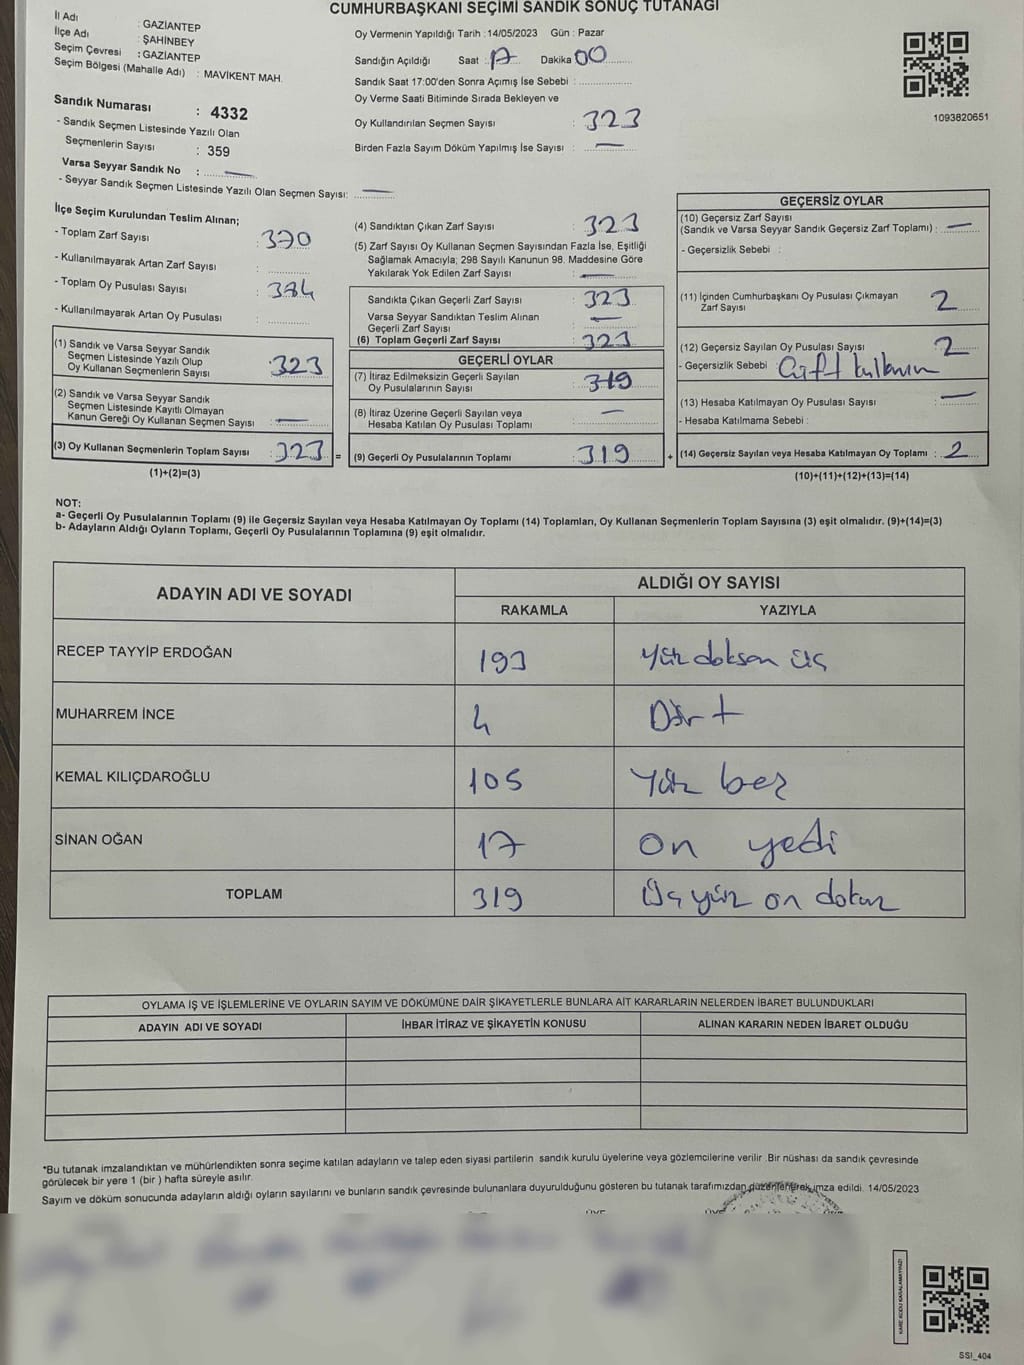 CUMHURBAŞKANI SEÇİMİ SANDIK SONUÇ TUTANAĞI
İl Adı : GAZİANTEP
İlçe Adı : ŞAHİNBEY
Seçim Çevresi : GAZİANTEP
Seçim Bölgesi (Mahalle Adı) : MAVİKENT MAH.
Sandık Numarası : 4332
- Sandık Seçmen Listesinde Yazılı Olan
Seçmenlerin Sayısı : 359
Varsa Seyyar Sandık No :
- Seyyar Sandık Seçmen Listesinde Yazılı Olan Seçmen Sayısı:
Oy Vermenin Yapıldığı Tarih :14/05/2023 Gün : Pazar
Sandığın Açıldığı Saat : 17 Dakika 00
Sandık Saat 17:00'den Sonra Açımış İse Sebebi :
Oy Verme Saati Bitiminde Sırada Bekleyen ve
Oy Kullandırılan Seçmen Sayısı : 323
Birden Fazla Sayım Döküm Yapılmış İse Sayısı : —
1093820651
İlçe Seçim Kurulundan Teslim Alınan;
- Toplam Zarf Sayısı : 370
- Kullanılmayarak Artan Zarf Sayısı :
- Toplam Oy Pusulası Sayısı : 384
- Kullanılmayarak Artan Oy Pusulası :
(1) Sandık ve Varsa Seyyar Sandık
Seçmen Listesinde Yazılı Olup
Oy Kullanan Seçmenlerin Sayısı : 323
(2) Sandık ve Varsa Seyyar Sandık
Seçmen Listesinde Kayıtlı Olmayan
Kanun Gereği Oy Kullanan Seçmen Sayısı : —
(3) Oy Kullanan Seçmenlerin Toplam Sayısı : 323 =
(1)+(2)=(3)
(4) Sandıktan Çıkan Zarf Sayısı : 323
(5) Zarf Sayısı Oy Kullanan Seçmen Sayısından Fazla İse, Eşitliği
Sağlamak Amacıyla; 298 Sayılı Kanunun 98. Maddesine Göre
Yakılarak Yok Edilen Zarf Sayısı : —
Sandıkta Çıkan Geçerli Zarf Sayısı : 323
Varsa Seyyar Sandıktan Teslim Alınan
Geçerli Zarf Sayısı : —
(6) Toplam Geçerli Zarf Sayısı : 323
GEÇERLİ OYLAR
(7) İtiraz Edilmeksizin Geçerli Sayılan
Oy Pusulalarının Sayısı : 319
(8) İtiraz Üzerine Geçerli Sayılan veya
Hesaba Katılan Oy Pusulası Toplamı : —
(9) Geçerli Oy Pusulalarının Toplamı : 319 +
GEÇERSİZ OYLAR
(10) Geçersiz Zarf Sayısı
(Sandık ve Varsa Seyyar Sandık Geçersiz Zarf Toplamı) : —
- Geçersizlik Sebebi :
(11) İçinden Cumhurbaşkanı Oy Pusulası Çıkmayan
Zarf Sayısı : 2
(12) Geçersiz Sayılan Oy Pusulası Sayısı : 2
- Geçersizlik Sebebi : Çift kullanım
(13) Hesaba Katılmayan Oy Pusulası Sayısı : —
- Hesaba Katılmama Sebebi :
(14) Geçersiz Sayılan veya Hesaba Katılmayan Oy Toplamı : 2
(10)+(11)+(12)+(13)=(14)
NOT:
a- Geçerli Oy Pusulalarının Toplamı (9) ile Geçersiz Sayılan veya Hesaba Katılmayan Oy Toplamı (14) Toplamları, Oy Kullanan Seçmenlerin Toplam Sayısına (3) eşit olmalıdır. (9)+(14)=(3)
b- Adayların Aldığı Oyların Toplamı, Geçerli Oy Pusulalarının Toplamına (9) eşit olmalıdır.
ADAYIN ADI VE SOYADI ALDIĞI OY SAYISI
RAKAMLA YAZIYLA
RECEP TAYYİP ERDOĞAN 193 Yüz doksan üç
MUHARREM İNCE 4 Dört
KEMAL KILIÇDAROĞLU 105 Yüz beş
SİNAN OĞAN 17 on yedi
TOPLAM 319 Üç yüz on dokuz
OYLAMA İŞ VE İŞLEMLERİNE VE OYLARIN SAYIM VE DÖKÜMÜNE DAİR ŞİKAYETLERLE BUNLARA AİT KARARLARIN NELERDEN İBARET BULUNDUKLARI
ADAYIN ADI VE SOYADI İHBAR İTİRAZ VE ŞİKAYETİN KONUSU ALINAN KARARIN NEDEN İBARET OLDUĞU
*Bu tutanak imzalandıktan ve mühürlendikten sonra seçime katılan adayların ve talep eden siyasi partilerin sandık kurulu üyelerine veya gözlemcilerine verilir .Bir nüshası da sandık çevresinde
görülecek bir yere 1 (bir ) hafta süreyle asılır.
Sayım ve döküm sonucunda adayların aldığı oyların sayılarını ve bunların sandık çevresinde bulunanlara duyurulduğunu gösteren bu tutanak tarafımızdan düzenlenerek imza edildi. 14/05/2023
KARE KODU KARALAMAYINIZ!
SSI_404